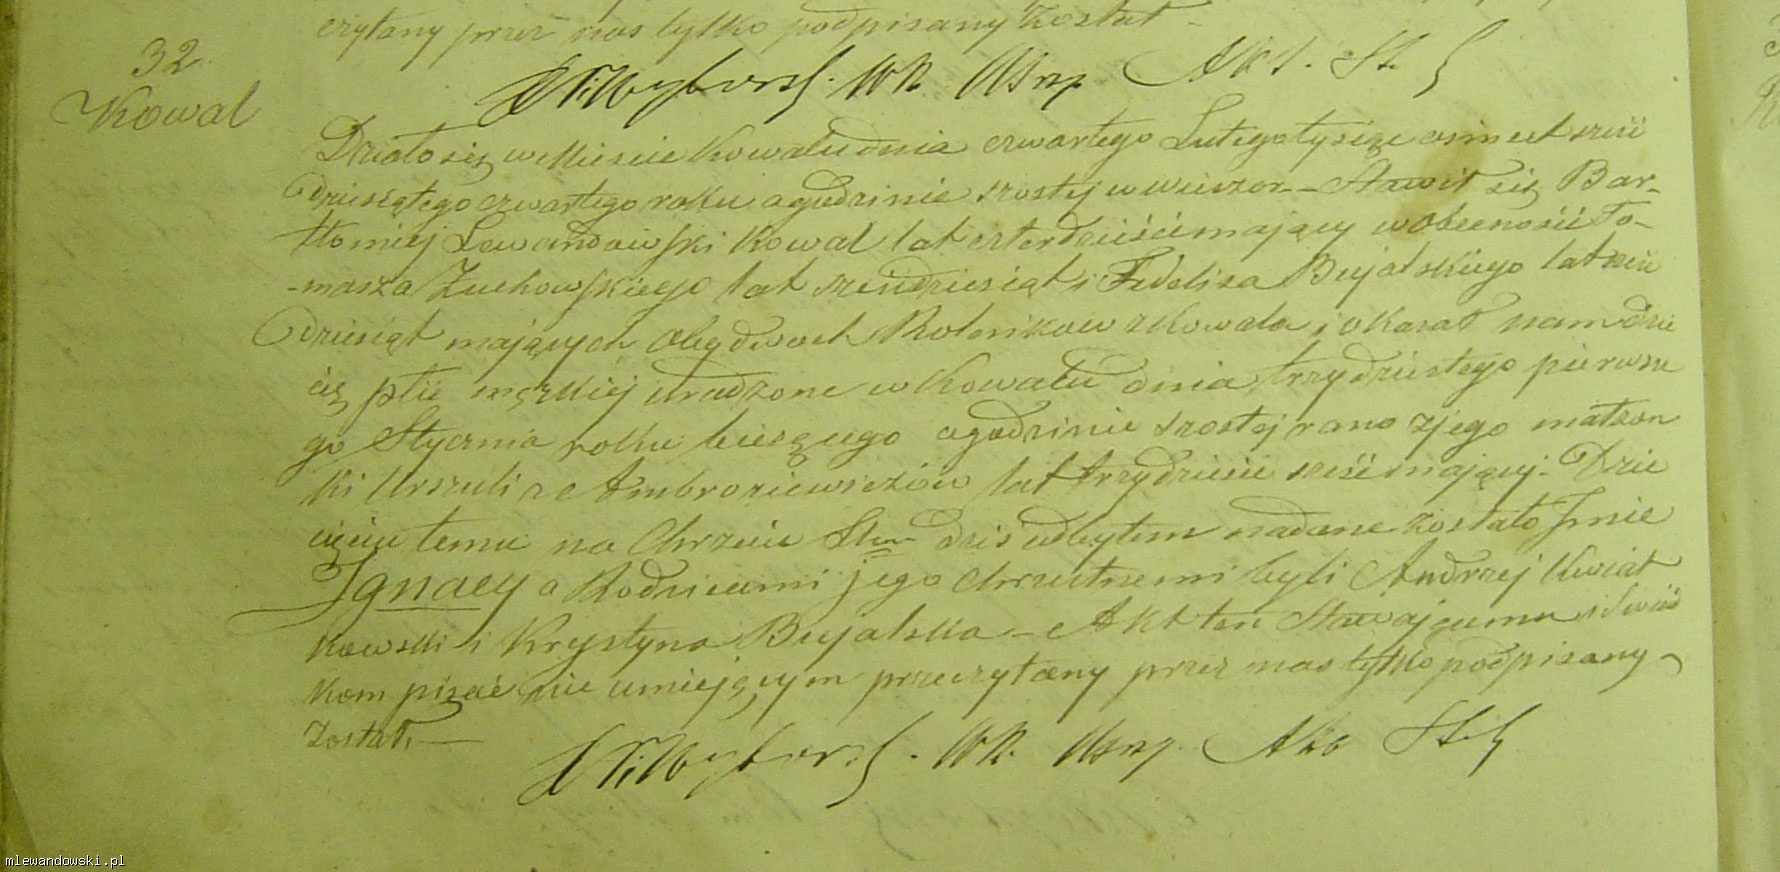 czytany przez nas tylko podpisany został
32
Kowal
X F. Wyborski. WK. Utrzy. Akt. St. C
Działo się w Mieście Kowalu dnia czwartego Lutego tysiąc osimset sześć
dziesiątego czwartego roku o godzinie szostej w wieczor – Stawił się Bar-
tłomiej Lewandowski Kowal lat czterdzieści mający w obecności To-
-masza Zuchowskiego lat szesdziesiąt i Fidelisa Bujalskiego lat sześć
dziesiąt mających obydwoch Rolnikow z Kowala i okazał nam dzie
cię płci męzkiej urodzone w Kowalu dnia trzydziestego pierwsze
go Stycznia roku bieżącego o godzinie szostej rano z jego małżon
ki Urszuli z Ambroziewiczów lat trzydzieści sześć mającej. Dzie
cięciu temu na Chrzcie Stym dziś odbytem nadane zostało Jmie
Ignacy a Rodzicami jego chrzestnemi byli Andrzej Kwiat
kowski i Krystyna Bujalska – Akt ten Stawającemu i Swiad
kom pisać nie umiejącym przeczytany przez nas tylko podpisany
został. —
mlewandowski.pl